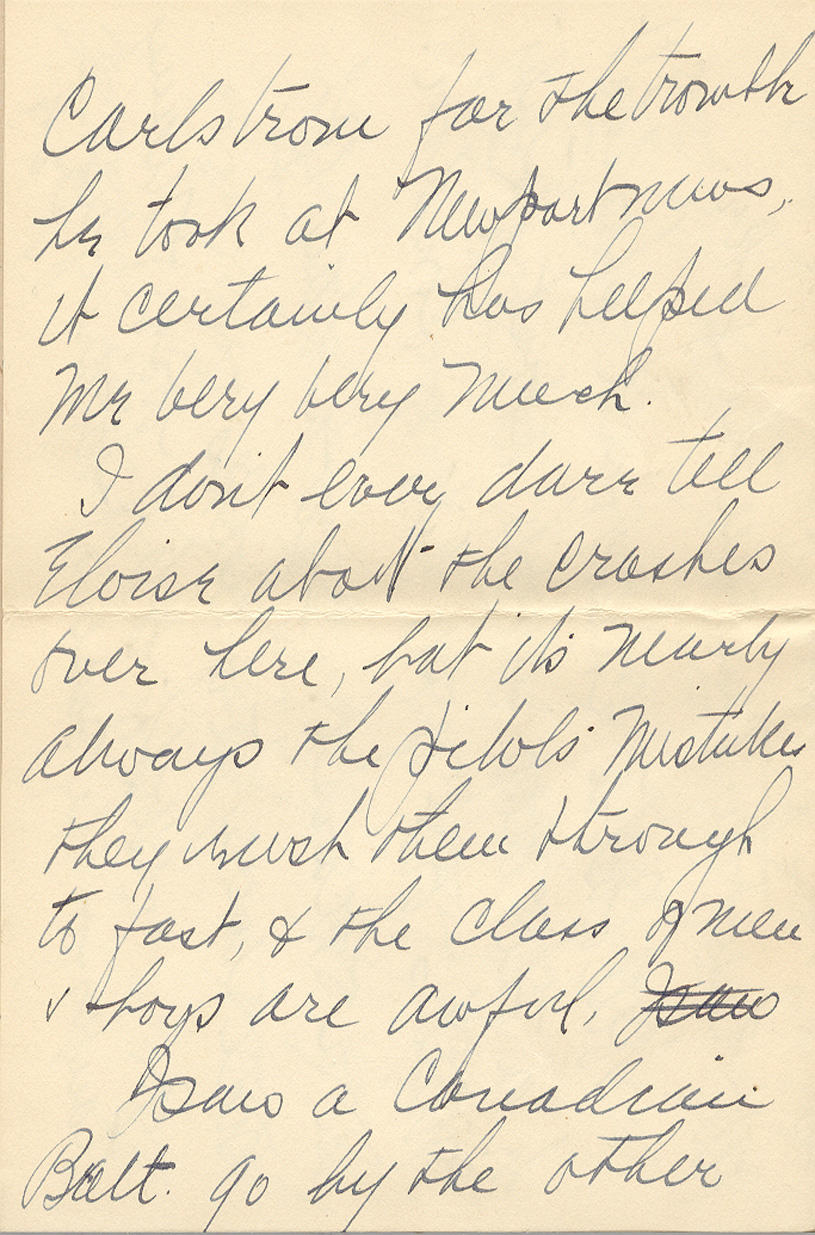 Carlstrom for the trowth
he took at Newport news,
it certainly has helped
Me very very much.
I dont ever dare tell
Eloise about the crashes
over here, but its nearly
always the pilots mistakes
they must them through
to fast, & the class of men
& boys are awful, I saw
I saw a Canadian
Batt. go by the other